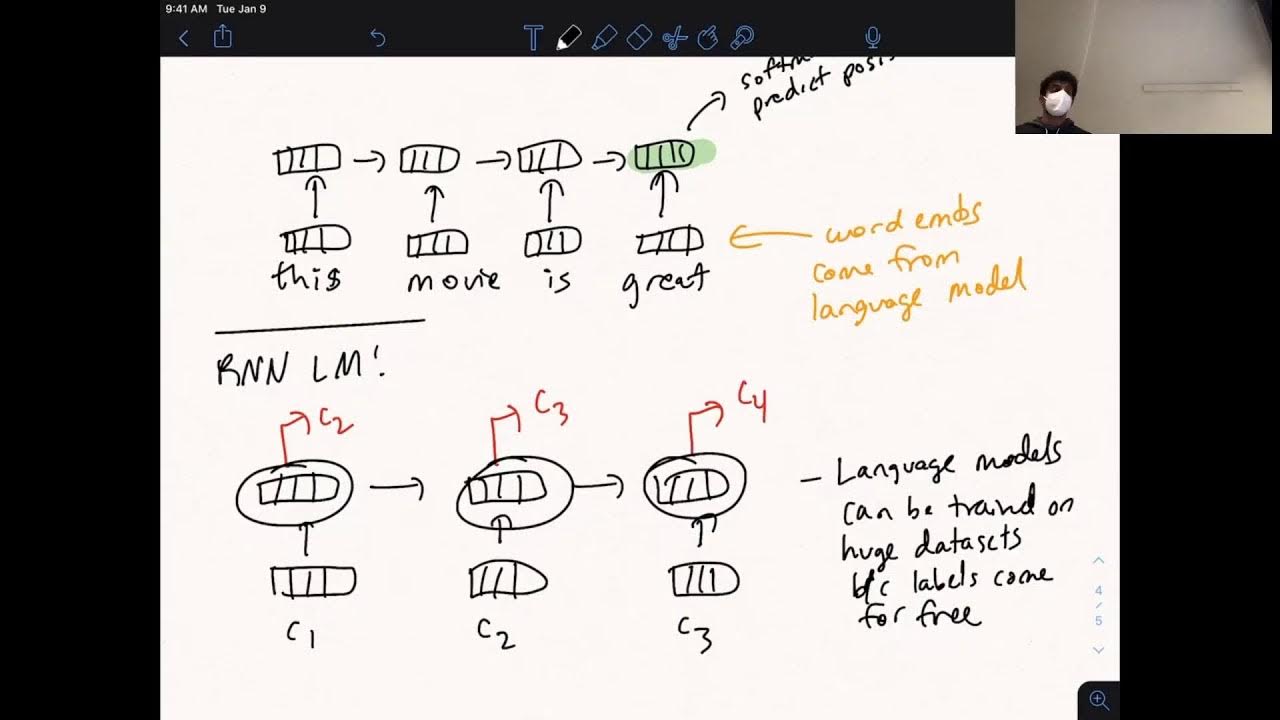 9:41 AM Tue Jan 9
predict
this movie is great
word embs
come from
language model
RNN LM!
c2 c3 c4
- Language models
can be traind on
huge datasets
b/c labels come
for free
c1 c2 c3
T
4
/
5